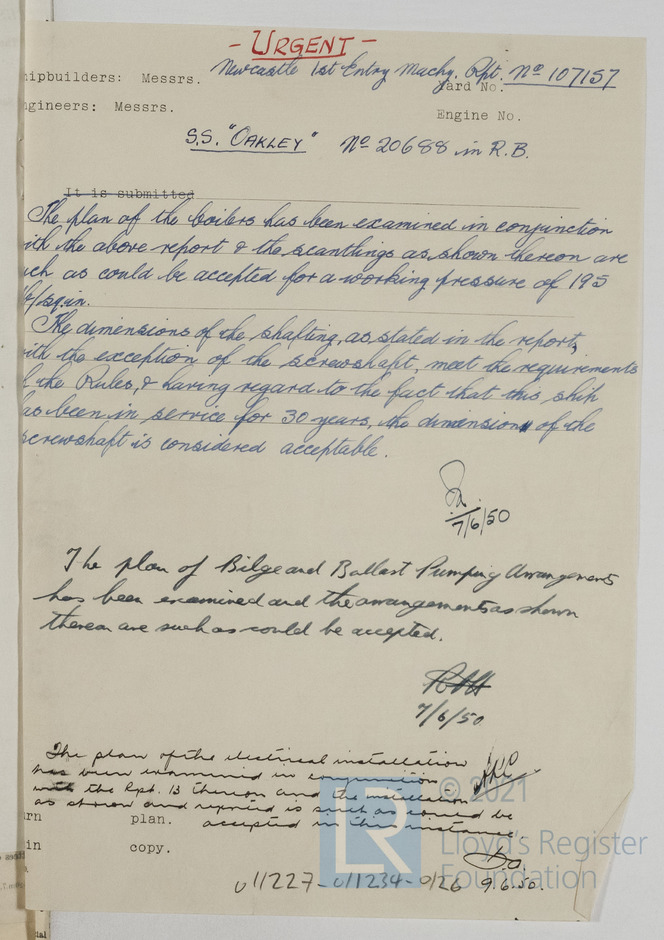 - URGENT -
Newcastle 1st Entry Machy. Rpt. No 107157
hipbuilders: Messrs.
Yard No.
gineers: Messrs.
Engine No.
S.S. "OAKLEY" No 20688 in R.B.
It is submitted
The plan of the boilers has been examined in conjunction
ith the above report & the scantlings as shown thereon are
uch as could be accepted for a working pressure of 195
lb/sq.in.
The dimensions of the shafting, as stated in the report,
ith the exception of the screwshaft, meet the requirements
f the Rules, & having regard to the fact that this ship
as been in service for 30 years, the dimension of the
screwshaft is considered acceptable.
7/6/50
The plan of Bilge and Ballast Pumping Arrangements
has been examined and the arrangements as shown
thereon are such as could be accepted.
7/6/50
The plan of the electrical installation
has been examined in conjunction
with the Rpt. 13 thereon and the installation
as shown and reported is such as could be
accepted in this instance.
rn plan.
in copy.
9.6.50.
011227-011234-0126
© 2021
LR
Lloyd's Register
Foundation